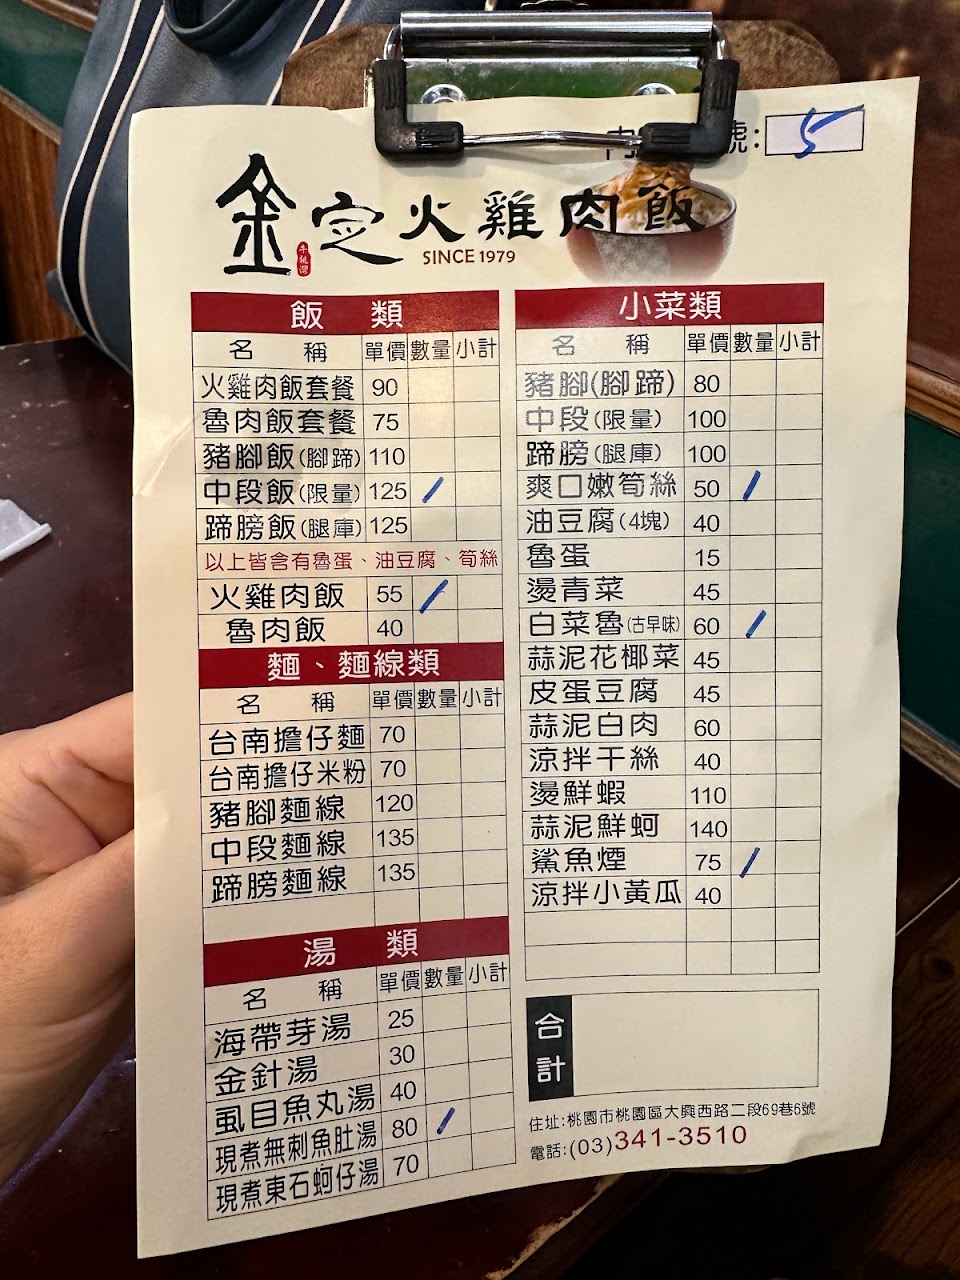 號: 5
金定火雞肉飯
SINCE 1979
飯 類
名 稱 單價 數量 小計
火雞肉飯套餐 90
魯肉飯套餐 75
豬腳飯(腳蹄) 110
中段飯(限量) 125 /
蹄膀飯(腿庫) 125
以上皆含有魯蛋、油豆腐、筍絲
火雞肉飯 55 /
魯肉飯 40
麵、麵線類
名 稱 單價 數量 小計
台南擔仔麵 70
台南擔仔米粉 70
豬腳麵線 120
中段麵線 135
蹄膀麵線 135
湯 類
名 稱 單價 數量 小計
海帶芽湯 25
金針湯 30
虱目魚丸湯 40
現煮無刺魚肚湯 80 /
現煮東石蚵仔湯 70
小菜類
名 稱 單價 數量 小計
豬腳(腳蹄) 80
中段(限量) 100
蹄膀(腿庫) 100
爽口嫩筍絲 50 /
油豆腐(4塊) 40
魯蛋 15
燙青菜 45
白菜魯(古早味) 60 /
蒜泥花椰菜 45
皮蛋豆腐 45
蒜泥白肉 60
涼拌干絲 40
燙鮮蝦 110
蒜泥鮮蚵 140
鯊魚煙 75 /
涼拌小黃瓜 40
合計
住址:桃園市桃園區大興西路二段69巷6號
電話:(03)341-3510